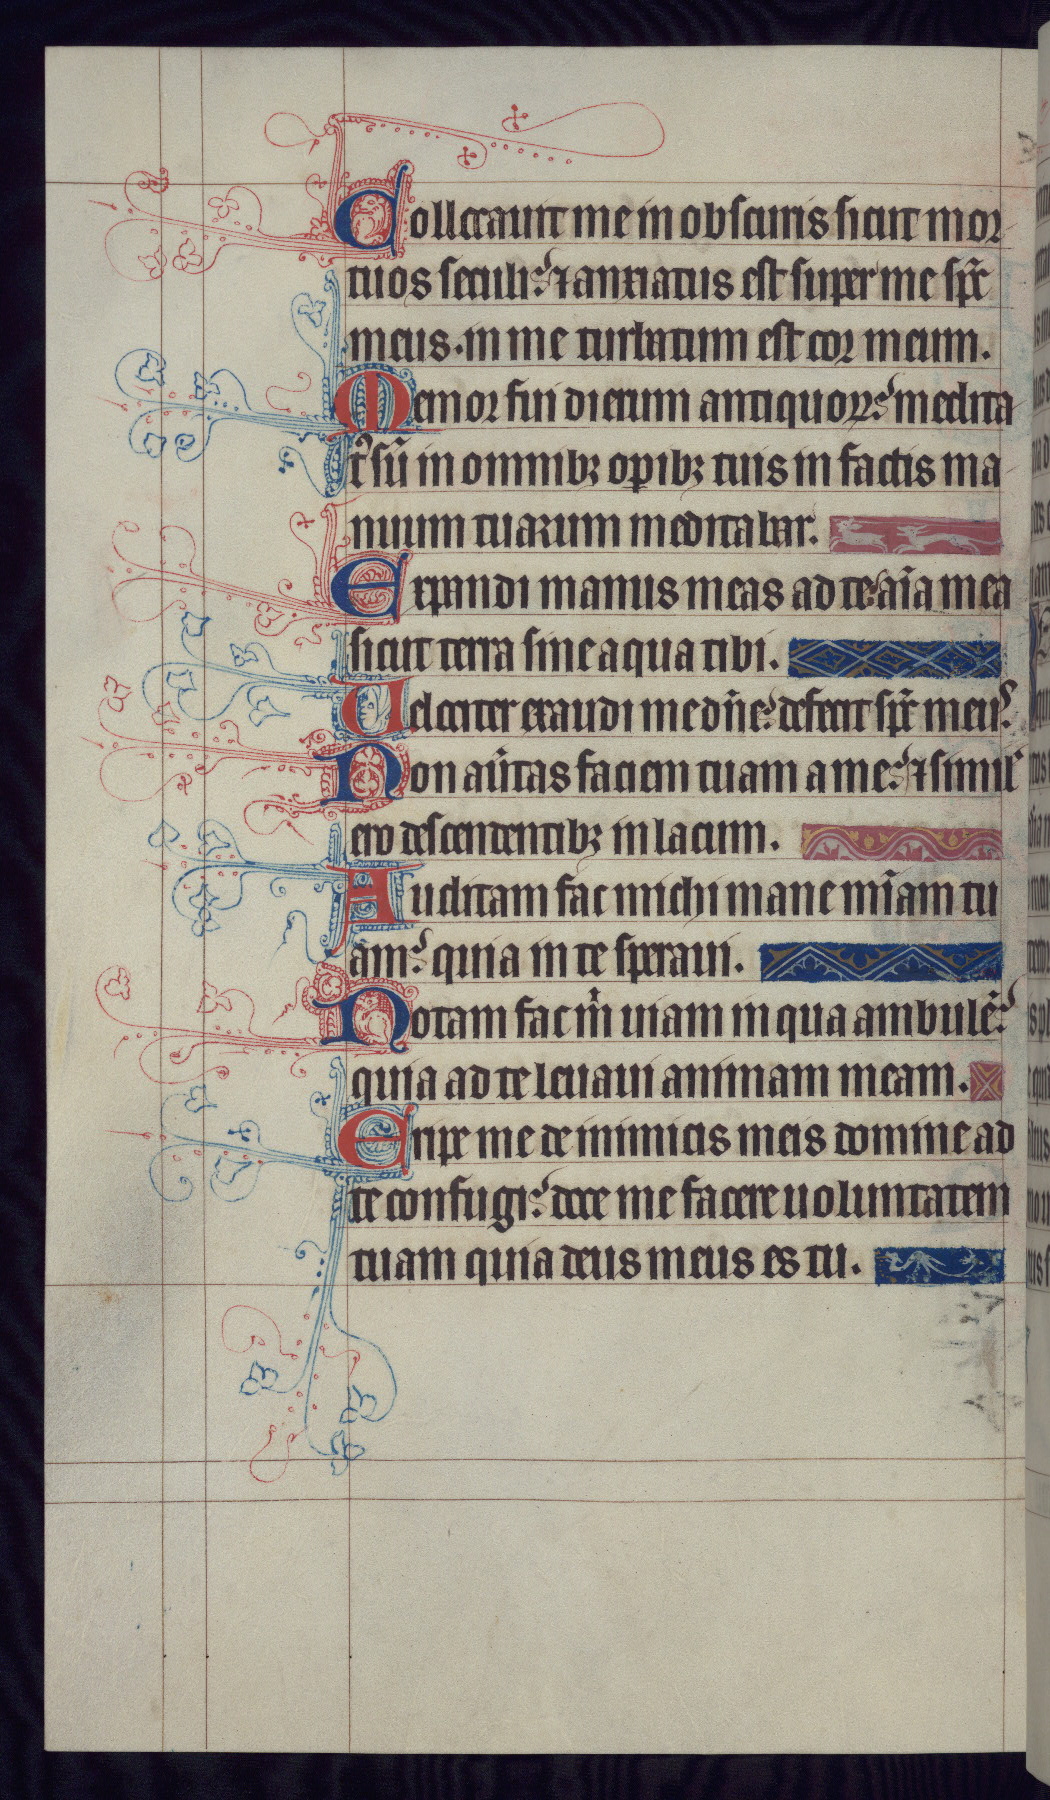 Collocauit me in obscuris sicut mor
tuos seculi: ⁊ anxiatus est super me sp̄c
meus. in me turbatum est cor meum.
Memor fui dierum antiquoꝝ: medita
tꝰ sū in omnibꝫ oꝑibꝫ tuis in factis ma
nuum tuarum meditabar.
Expandi manus meas ad te: aīa mea
sicut terra sine aqua tibi.
Uelociter exaudi me dn̄e: defecit sp̄c meuꝰ.
Non au̅tas faciem tuam a me: ⁊ simil'
ero descendentibꝫ in lacum.
Auditam fac michi mane mīam tu
am: quia in te speraui.
Notam fac m̄ uiam in qua ambulē:
quia ad te leuaui animam meam.
Eripe me de inimicis meis domine ad
te confugi: doce me facere uoluntatem
tuam quia deus meus es tu.